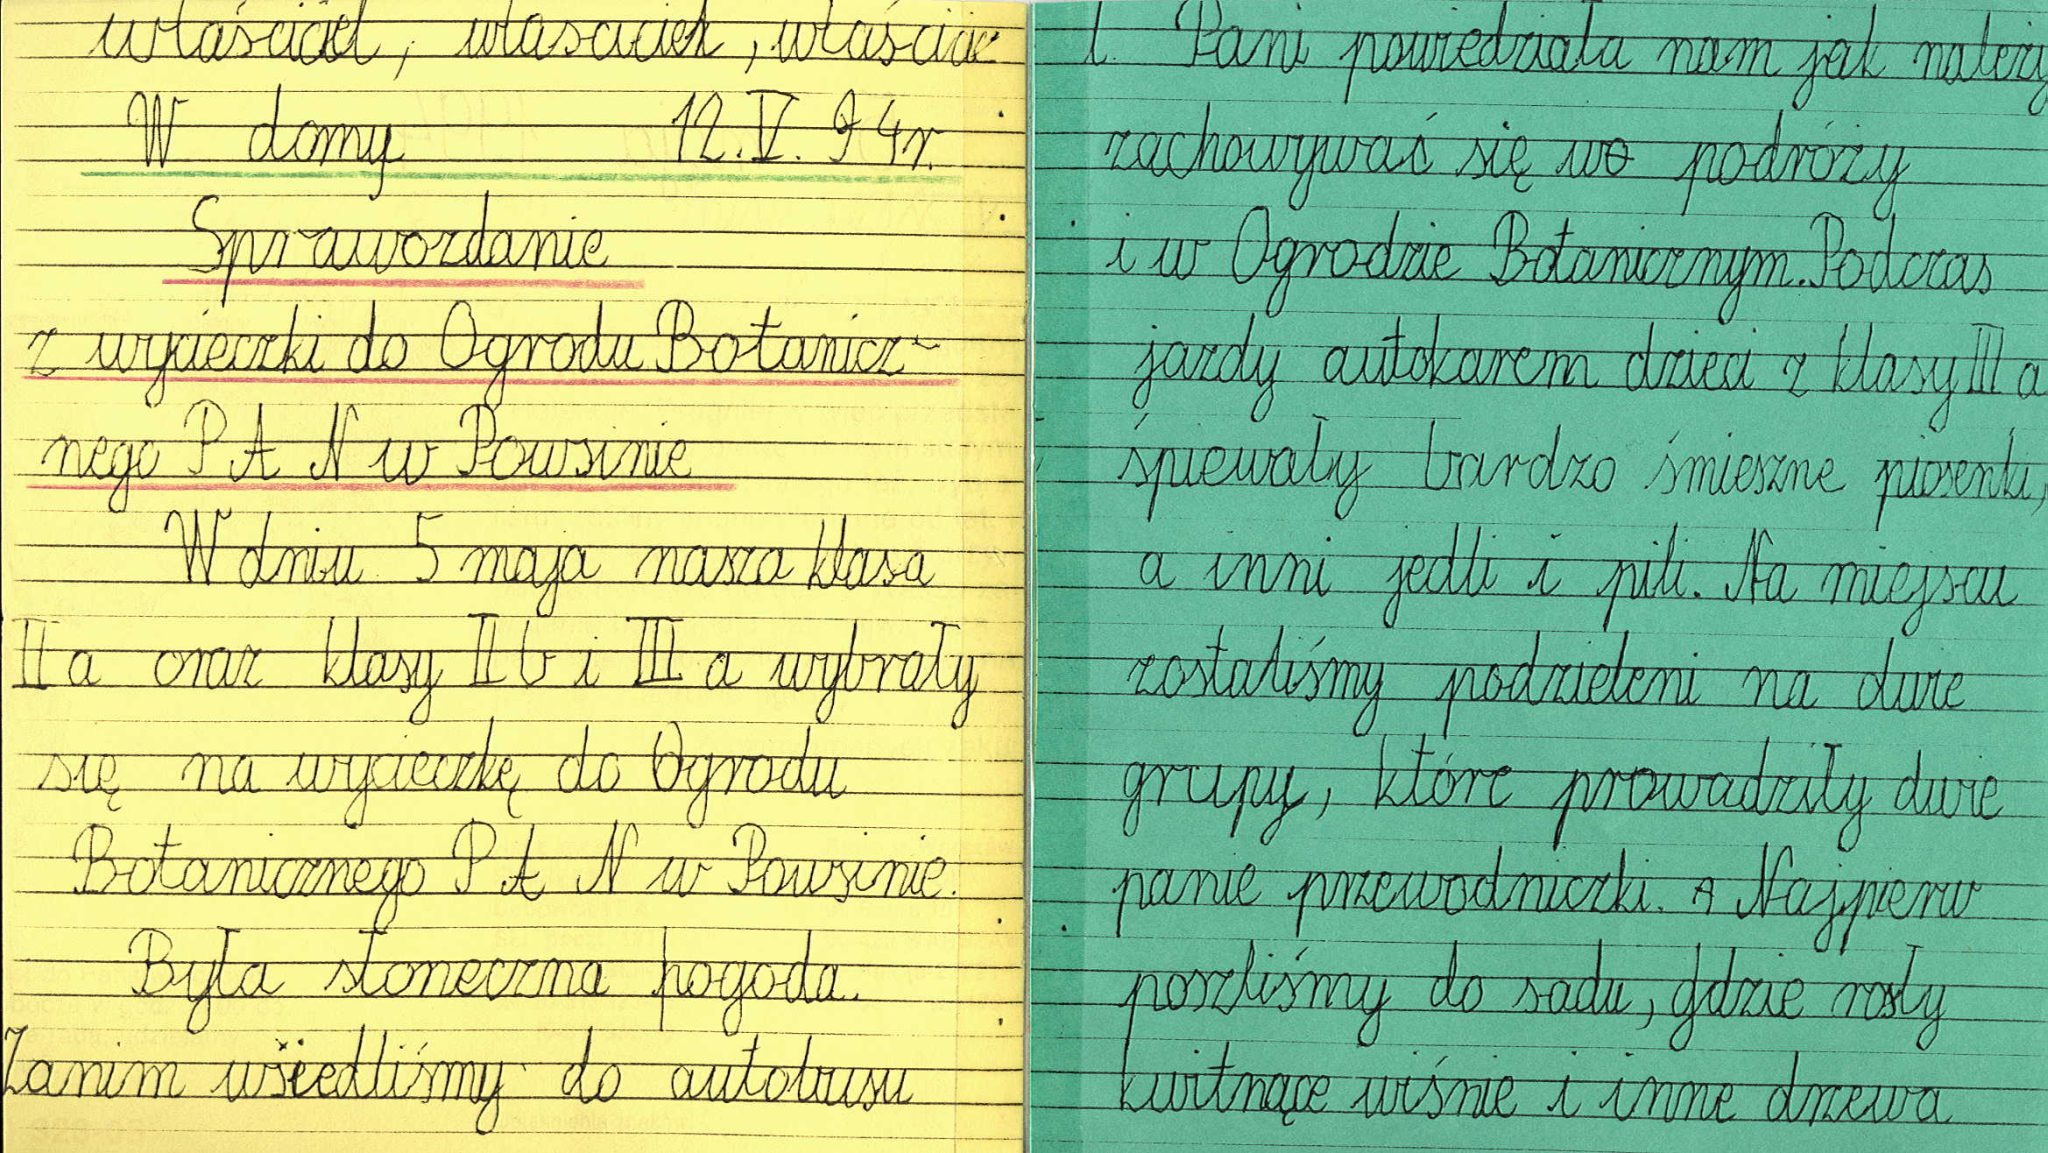 właściciel, właściciel, właścicie
W domy 12.V.94r.
Sprawozdanie
z wycieczki do Ogrodu Botanicz-
nego P A N w Powsinie
W dniu 5 maja nasza klasa
II a oraz klasy II b i III a wybrały
się na wycieczkę do Ogrodu
Botanicznego P A N w Powsinie.
Była słoneczna pogoda.
Zanim wsiedliśmy do autobusu
l. Pani powiedziała nam jak należy
zachowywać się wo podróży
i w Ogrodzie Botanicznym. Podczas
jazdy autokarem dzieci z klasy III a
śpiewały bardzo śmieszne piosenki,
a inni jedli i pili. Na miejscu
zostaliśmy podzieleni na dwie
grupy, które prowadziły dwie
panie przewodniczki. A Najpierw
poszliśmy do sadu, gdzie rosły
kwitnące wiśnie i inne drzewa